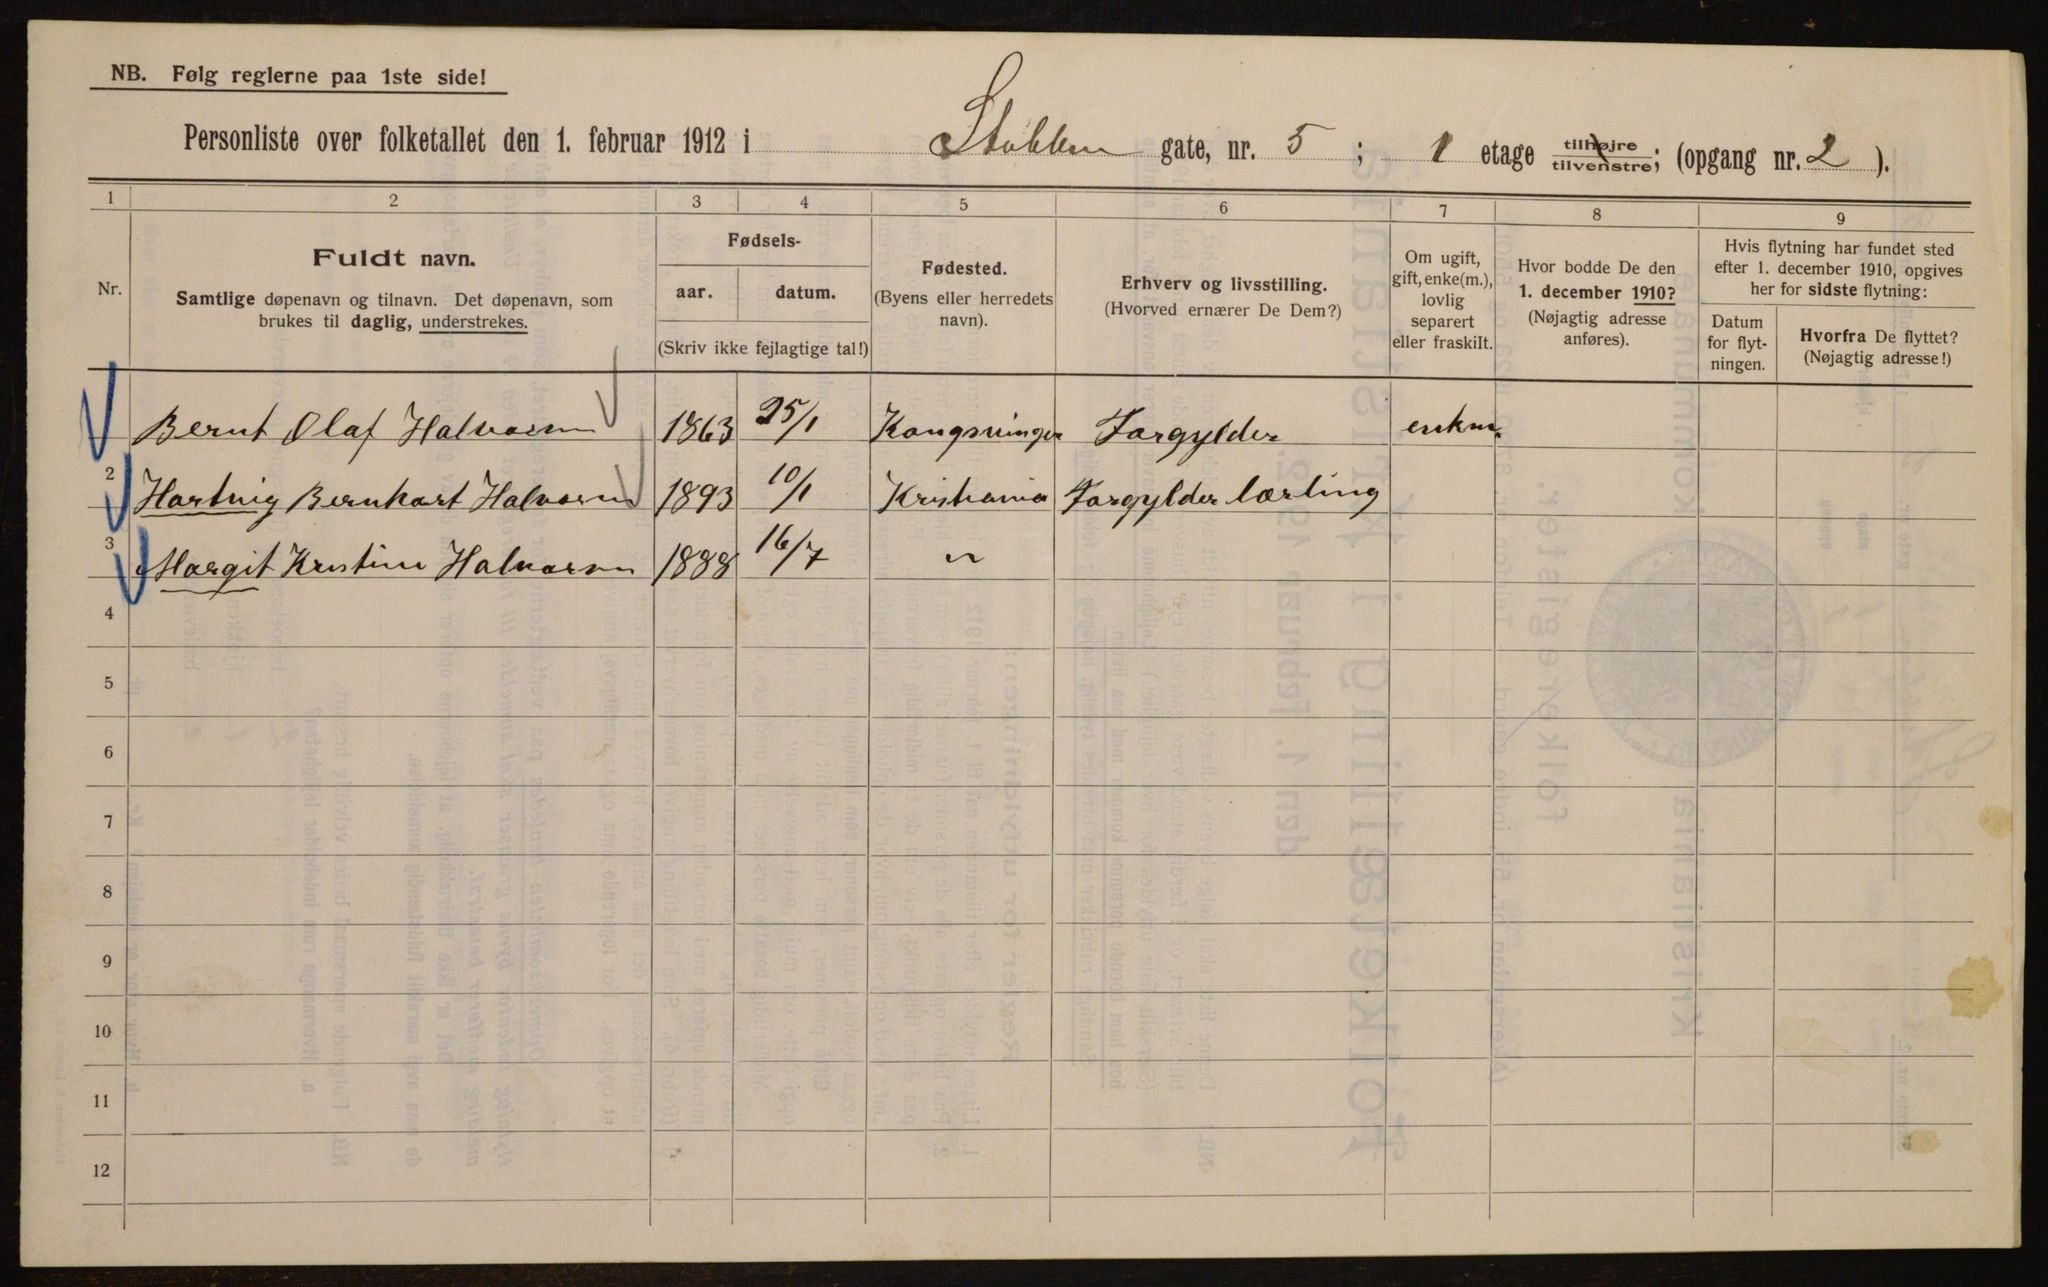 NB. Følg reglerne paa 1ste side!
Personliste over folketallet den 1. februar 1912 i Stokken gate, nr. 5 ; 1 etage tilhøjre tilvenstre; (opgang nr. 2 ).
1 2 3 4 5 6 7 8 9
Nr.
Fuldt navn.
Samtlige døpenavn og tilnavn. Det døpenavn, som
brukes til daglig, understrekes.
Fødsels-
aar. datum.
(Skriv ikke fejlagtige tal!)
Fødested.
(Byens eller herredets
navn).
Erhverv og livsstilling.
(Hvorved ernærer De Dem?)
Om ugift,
gift, enke(m.),
lovlig
separert
eller fraskilt.
Hvor bodde De den
1. december 1910?
(Nøjagtig adresse
anføres).
Hvis flytning har fundet sted
efter 1. december 1910, opgives
her for sidste flytning:
Datum
for flyt-
ningen.
Hvorfra De flyttet?
(Nøjagtig adresse!)
Bernt Olaf Halvorsen 1863 25/1 Kongsvinger Forgylder enkm.
2 Hartvig Bernhart Halvorsen 1893 10/1 Kristiania Forgylder lærling
3 Margit Kristine Halvorsen 1888 16/7 〃
4
5
6
7
8
9
10
11
12